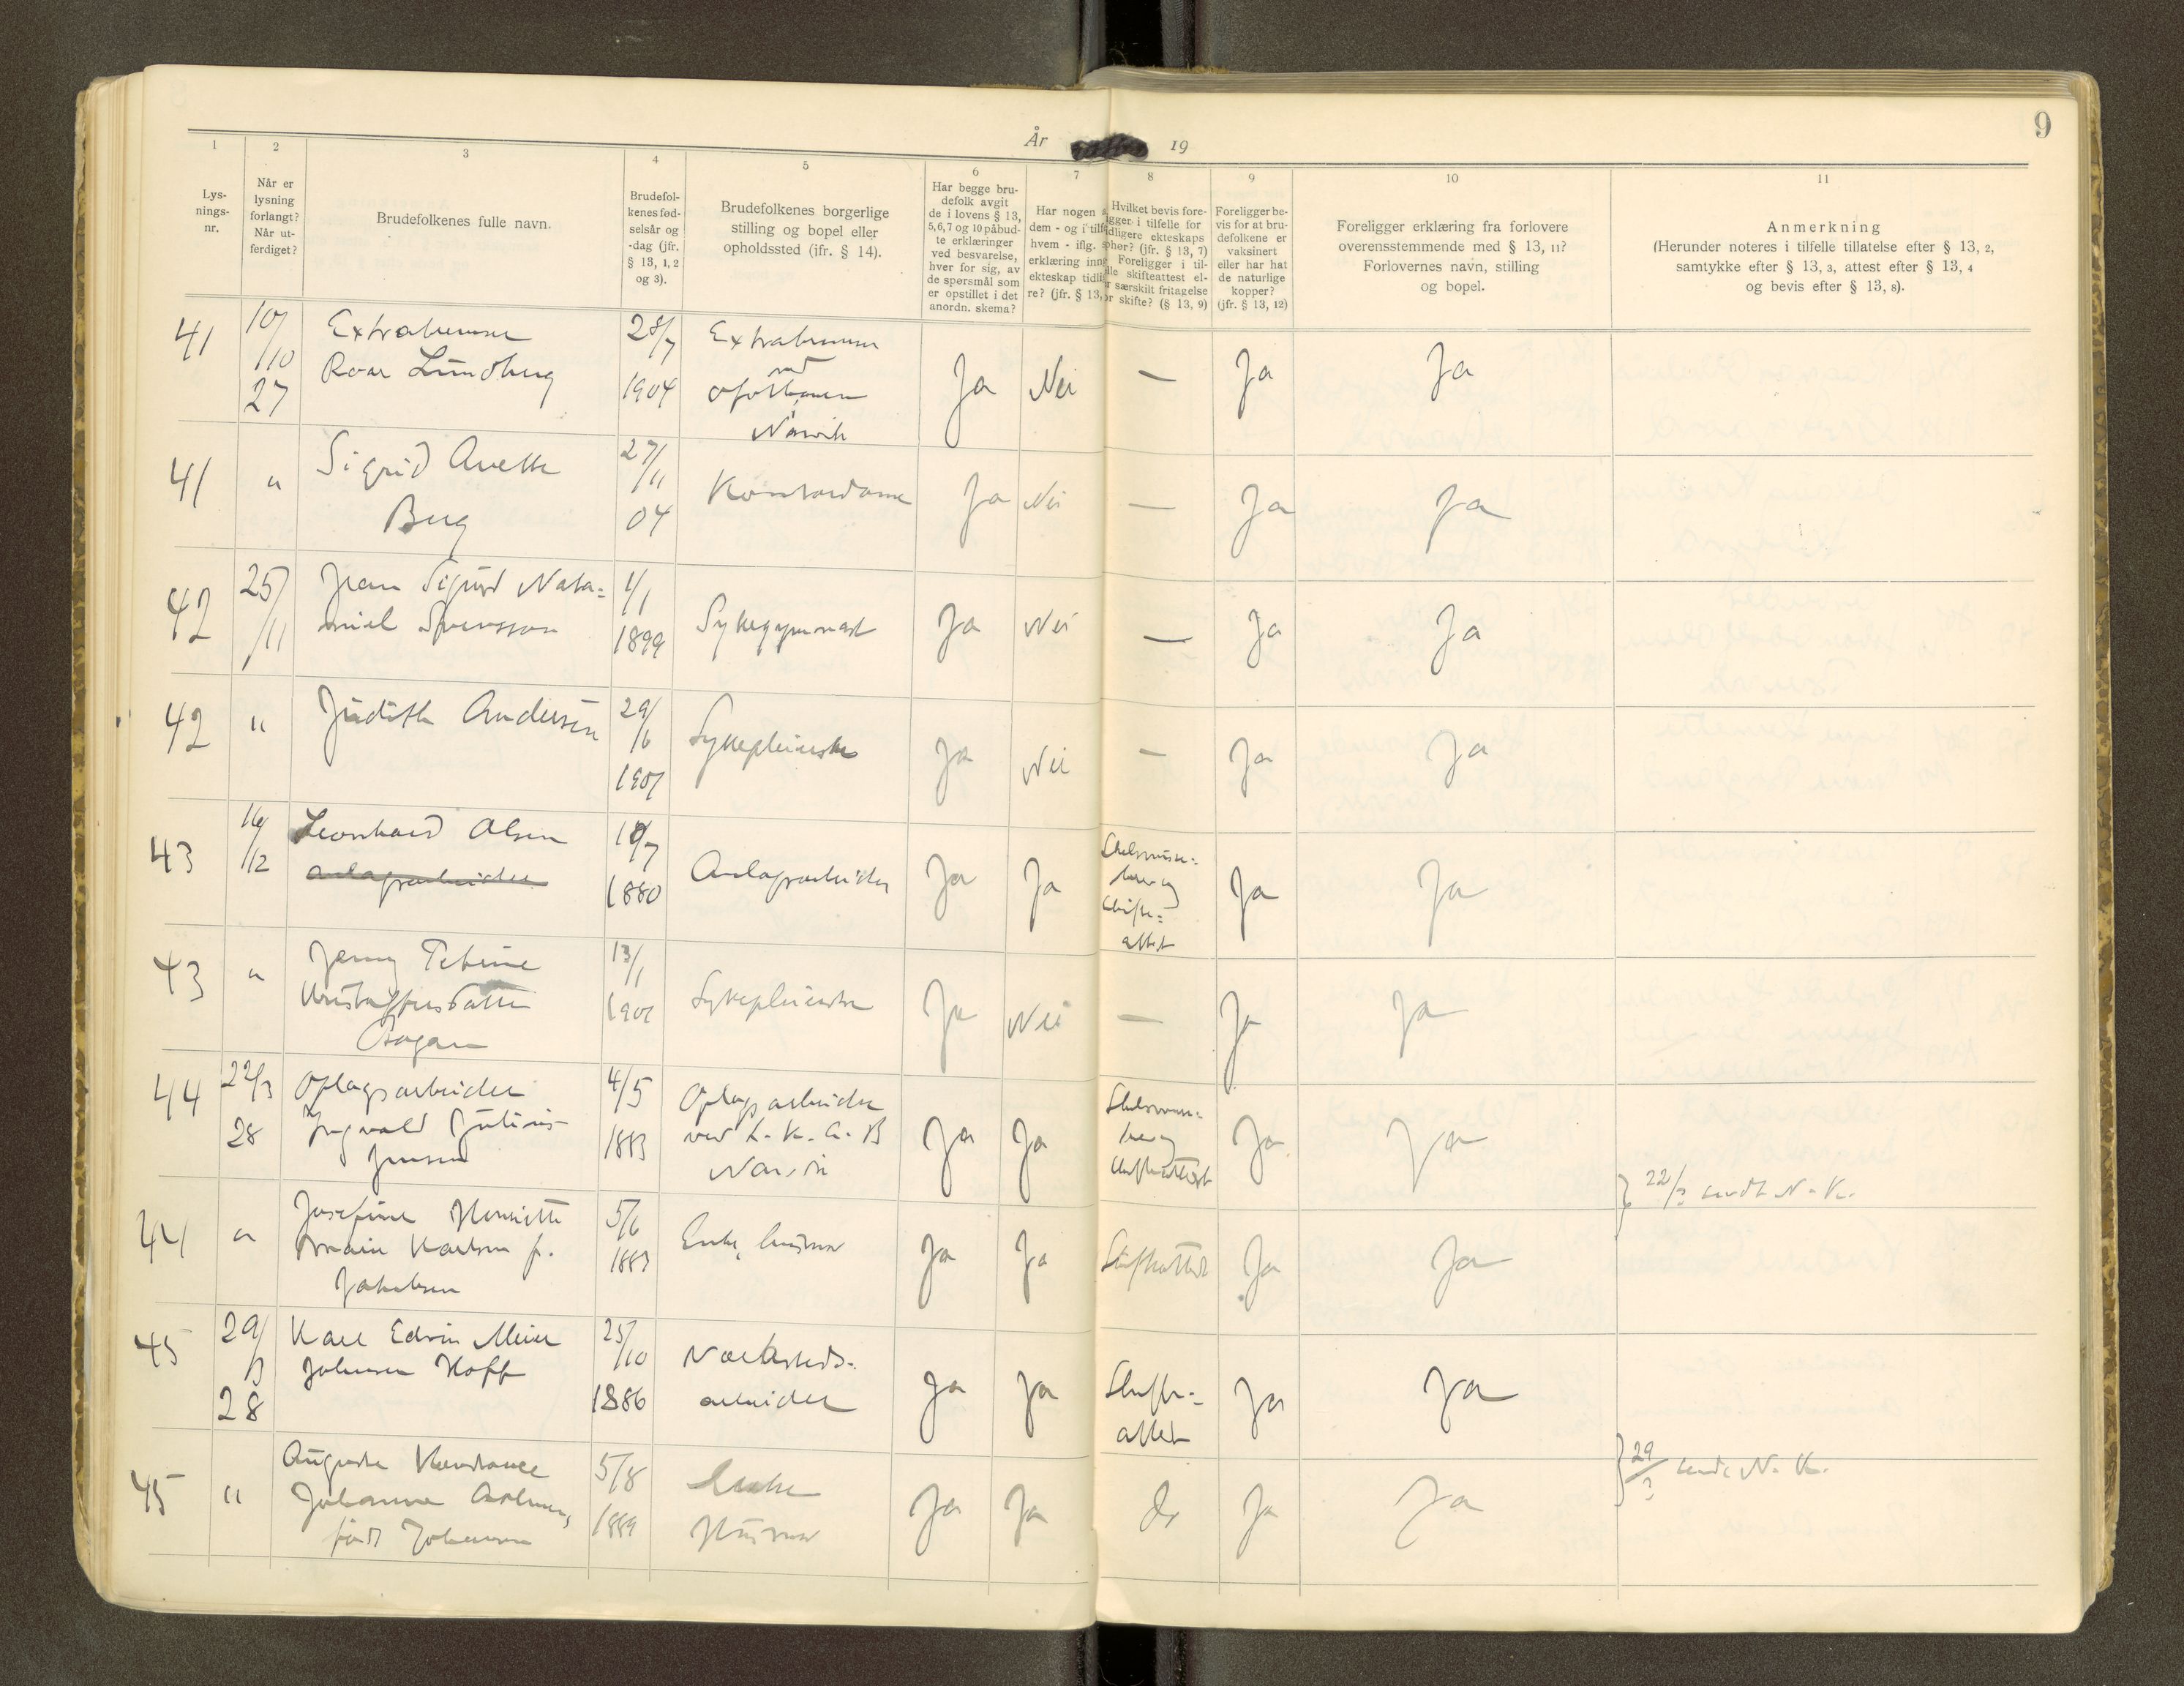 9
År 19
1 2 3 4 5 6 7 8 9 10 11
Lys-
nings-
nr.
Når er
lysning
forlangt?
Når ut-
ferdiget?
Brudefolkenes fulle navn.
Brudefol-
kenes fød-
selsår og
-dag (jfr.
§ 13, 1, 2
og 3).
Brudefolkenes borgerlige
stilling og bopel eller
opholdssted (ifr. § 14).
Har begge bru-
defolk avgit
de i lovens § 13,
5, 6, 7 og 10 påbud-
te erklæringer
ved besvarelse,
hver for sig, av
de spørsmål som
er opstillet i det
anordn. skema?
Har nogen
dem - og i
hvem - iflg.
erklæring
ekteskap
re? (jfr. § 13,
Hvilket bevis fore-
ligger i tilfelle for
tidligere ekteskaps
ophør? (jfr. § 13, 7)
Foreligger i til-
felle skifteattest el-
ler særskilt fritagelse
for skifte? (§ 13, 9)
Foreligger be-
vis for at bru-
defolkene er
vaksinert
eller har hat
de naturlige
kopper?
(jfr. § 13, 12)
Foreligger erklæring fra forlovere
overensstemmende med § 13, 11?
Forlovernes navn, stilling
og bopel.
Anmerkning
(Herunder noteres i tilfelle tillatelse efter § 13, 2,
samtykke efter § 13, 3, attest efter § 13, 4
og bevis efter § 13, 8).
41 10/10 27
Roar Lundberg
28/7 1904
Narvik
Ja Nei — Ja Ja
41 "
Sigrid Anette
Berg
27/11 04
Kontordame
Ja Nei — Ja Ja
42 25/11
Sigurd Nata=
niel Svensson
1/1 1899
Sykegymnast
Ja Nei — Ja Ja
42 "
Judith Andersen
29/6 1901
Sykepleierske
Ja Nei — Ja Ja
43 16/12
Leonhard Olsen
anlagsarbeider
1880
Anlagsarbeider
Ja Ja
Skilsmisse=
bev. og
skifte=
attest
Ja Ja
43 "
Jenny Petrine
Kristoffersdatter
13/1
Sykepleierske
Ja Nei — Ja Ja
44 22/3 28
Oplagsarbeider
Ingvald Julius
Jensen
4/5 1883
Oplagsarbeider
ved L. K. A. B
Narvik
Ja Ja
Skilsmisse-
bev. og
skifteattest
Ja Ja
44 "
Josefine Henriette
Marie Karlsen f.
Jakobsen
5/6 1883
Enke, husmor
Ja Ja
Skifteattest
Ja Ja
} 22/3 sendt N. K.
45 29/3 28
Karl Edvin Meier
Johnsen Hoff
25/10 1886
Verksteds-
arbeider
Ja Ja
Skifte-
attest
Ja Ja
45 "
Augusta Konstance
Johanna
født Johansen
5/8 1889
Enke
Husmor
Ja Ja do Ja Ja
} 29/3 sendt N. K.